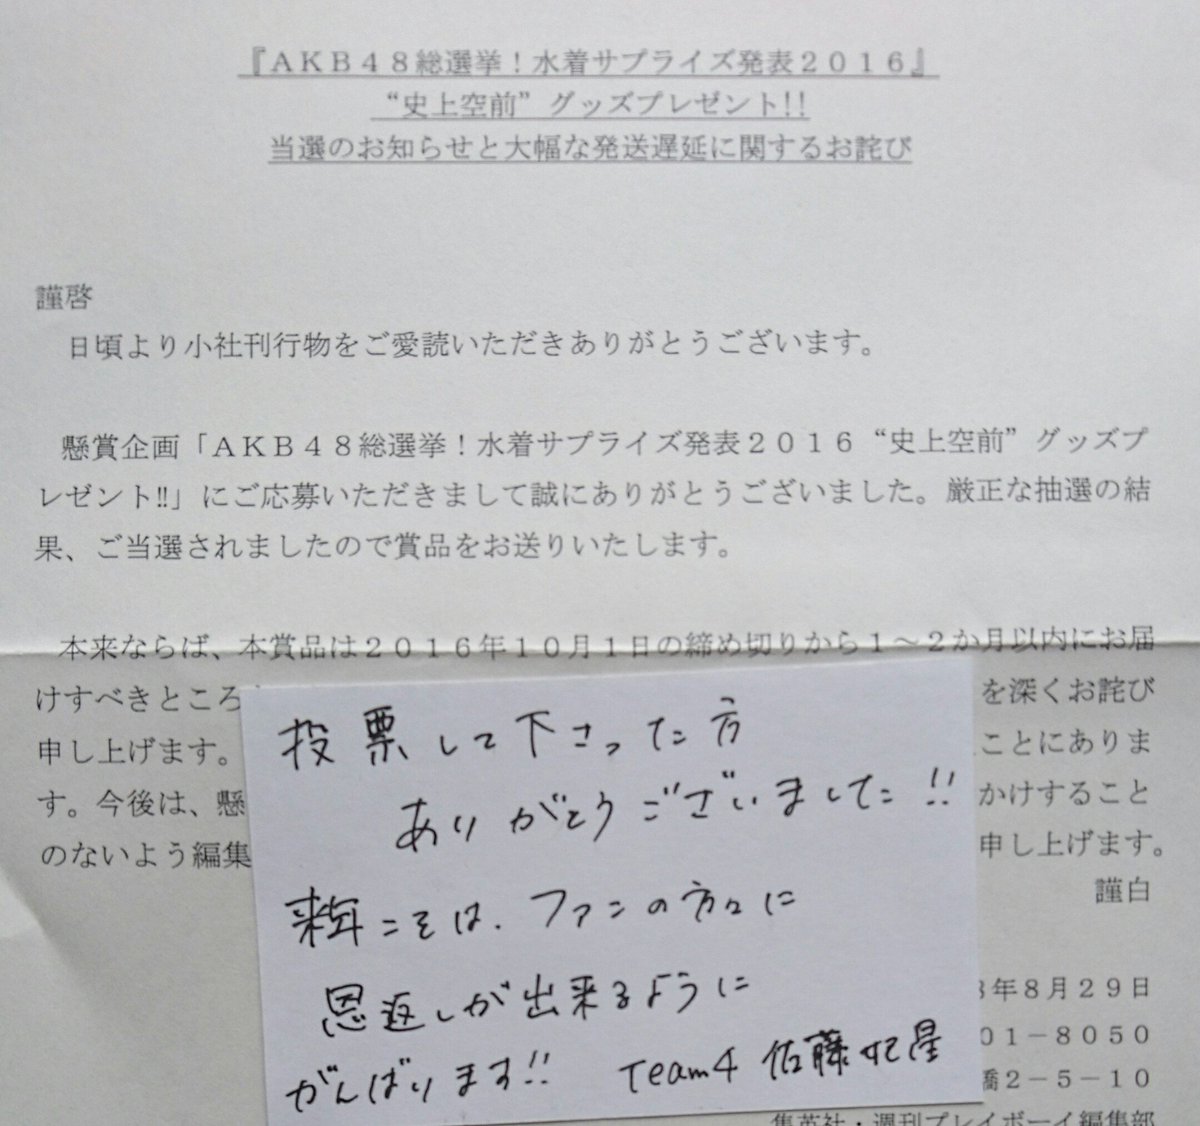 『ＡＫＢ４８総選挙！水着サプライズ発表２０１６』
“史上空前”グッズプレゼント!!
当選のお知らせと大幅な発送遅延に関するお詫び
謹啓
日頃より小社刊行物をご愛読いただきありがとうございます。
懸賞企画「ＡＫＢ４８総選挙！水着サプライズ発表２０１６“史上空前”グッズプ
レゼント!!」にご応募いただきまして誠にありがとうございました。厳正な抽選の結
果、ご当選されましたので賞品をお送りいたします。
本来ならば、本賞品は２０１６年１０月１日の締め切りから１～２か月以内にお届
けすべきところ を深くお詫び
申し上げます。 ことにありま
す。今後は、懸 かけすること
のないよう編集 申し上げます。
謹白
年８月２９日
０１－８０５０
橋２－５－１０
集英社・週刊プレイボーイ編集部
投票して下さった方
ありがとうございました!!
来年こそは、ファンの方々に
恩返しが出来るように
がんばります!! Team4 佐藤妃星